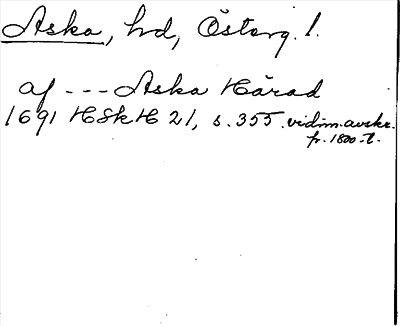 Aska, hd, Österg. l.
af --- Aska Härad
1691 HSkH 21, s. 355. vidim. avskr.
fr. 1800-t.